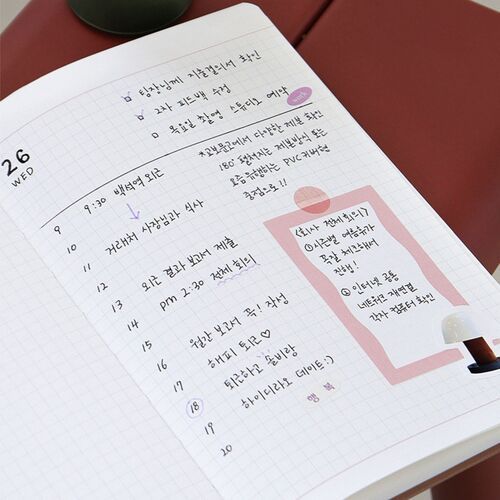 팀장님께 지출결의서 확인
2차 피드백 수정
목요일 촬영 스튜디오 예약
work
26
WED
*교보문고에서 다양한 제본 확인
180° 펼쳐지는 제본방식 또는
요즘 유행하는 PVC커버형
중점으로!!
9 9:30 백석역 외근
10
11 거래처 사장님과 식사
12
13 외근 결과 보고서 제출
14 pm 2:30 전체 회의
15
16 월간 보고서 꼭! 작성
17 해피 퇴근♡
18 퇴근하고 솔비랑
19 하이디라오 데이트:)
20
행복
<회사 전체 회의>
① 시즌별 여름휴가
꼭 잘 체크해서
진행!
② 인터넷 공통
네트워크 재연결
각자 컴퓨터 확인